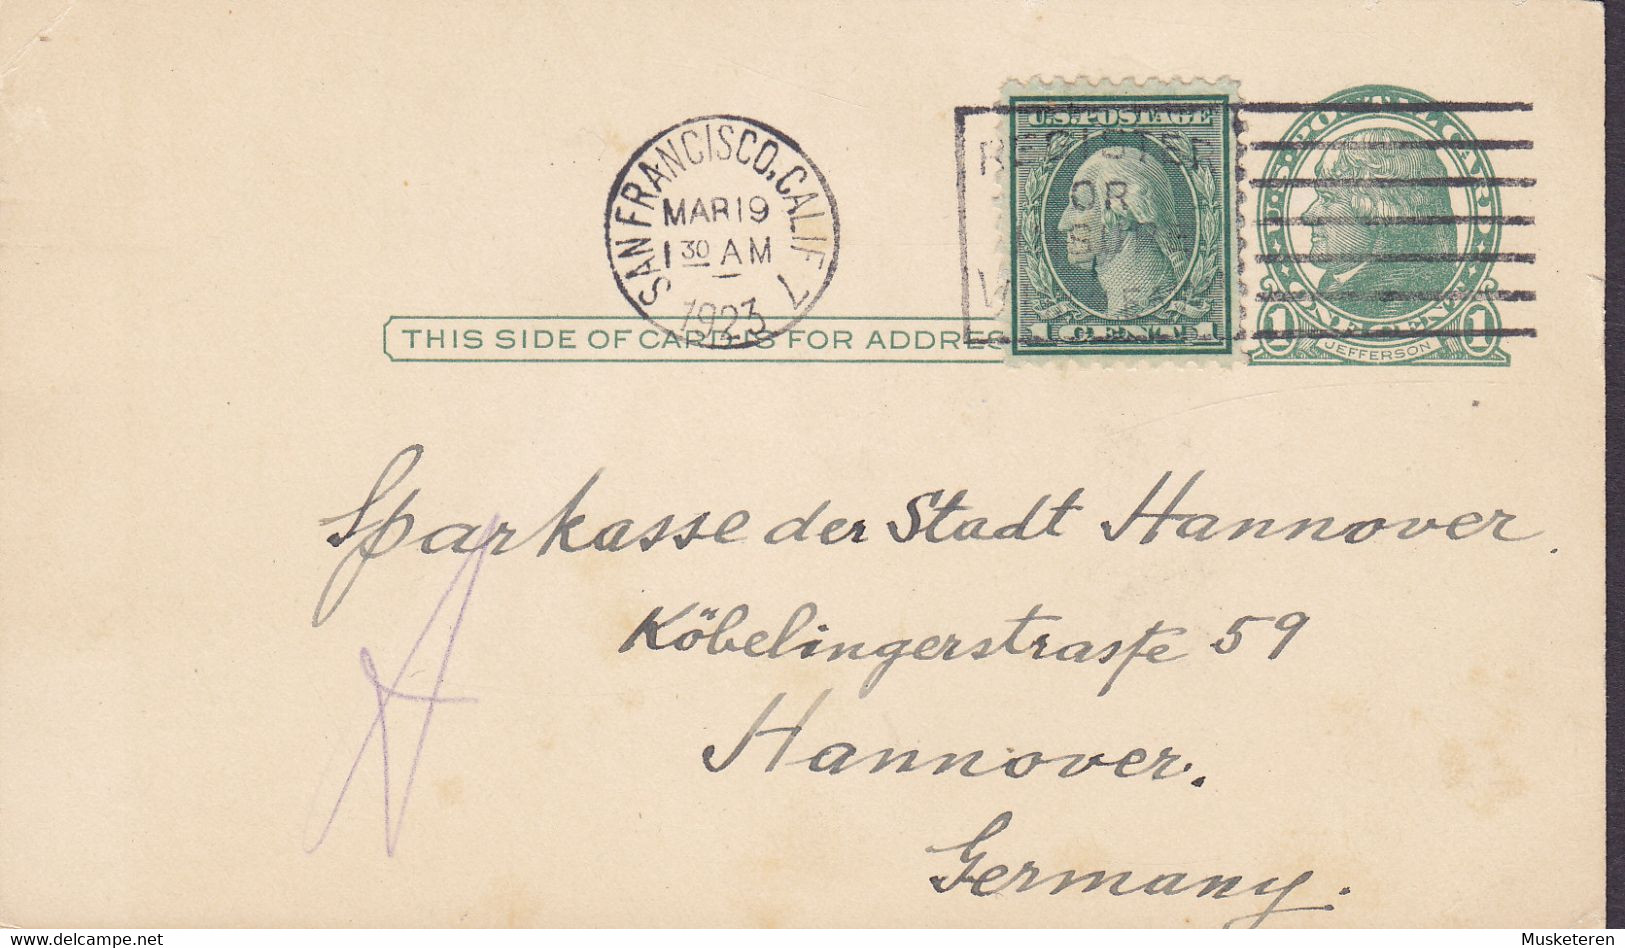 SAN FRANCISCO, CALIF 7
MAR 19
1 30 AM
1923
U.S. POSTAGE
REGISTER
OR
1 1
U.S. POSTAL CARD
1 1
JEFFERSON
THIS SIDE OF CARD IS FOR ADDRES
Sparkasse der Stadt Hannover.
Köbelingerstraße 59
Hannover.
Germany.
www.delcampe.net
Musketeren